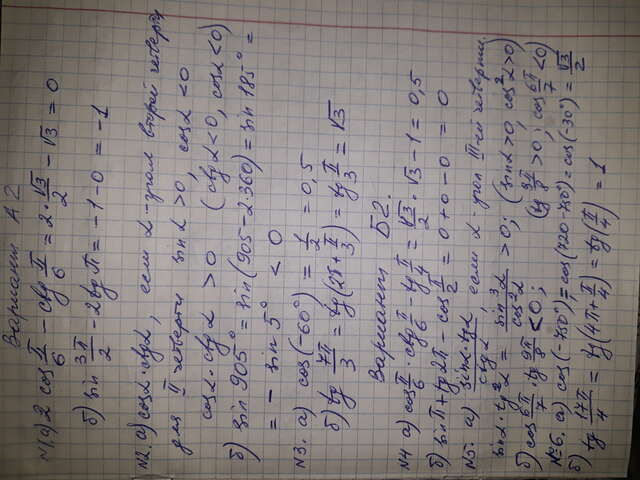 Вариант А2
N1, а) 2 cos π/6 - ctg π/6 = 2·√3/2 - √3 = 0
б) sin 3π/2 - 2tg π = -1 - 0 = -1
N2. а) cos α · ctg α, если α - угол второй четверти
для II четверти sin α > 0, cos α < 0
cos α · ctg α > 0 (ctg α < 0, cos α < 0)
б) sin 905° = sin(905 - 2·360) = sin 185° =
= - sin 5° < 0
N3. а) cos(-60°) = 1/2 = 0,5
б) tg 7π/3 = tg(2π + π/3) = tg π/3 = √3
Вариант Б2.
N4 а) cos π/6 · ctg π/6 - tg π/4 = √3/2 · √3 - 1 = 0,5
б) sin π + tg 2π - cos π/2 = 0 + 0 - 0 = 0
N5. а) sin α · tg α / ctg α, если α угол III-ей четверти.
sin α · tg² α = sin³ α / cos² α > 0; (sin α > 0, cos² α > 0)
б) cos 6π/7 · tg 9π/8 < 0; (tg 9π/8 > 0; cos 6π/7 < 0)
N6. а) cos(-750°) = cos(720 - 750) = cos(-30°) = √3/2
б) tg 17π/4 = tg(4π + π/4) = tg(π/4) = 1